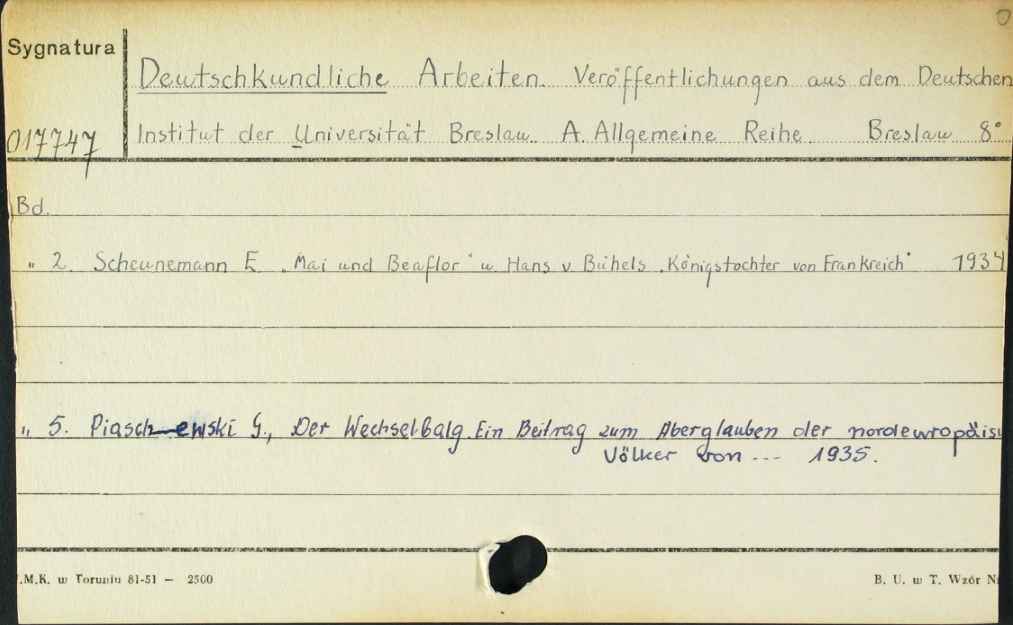 Sygnatura
Deutschkundliche Arbeiten. Veröffentlichungen aus dem Deutschen
017747
Institut der Universität Breslau. A. Allgemeine Reihe. Breslau 8°
Bd.
" 2. Scheunemann E. „Mai und Beaflor" u. Hans v. Bühels „Königstochter von Frankreich" 1934
" 5. Piaschewski G., Der Wechselbalg. Ein Beitrag zum Aberglauben der nordeuropäis
Völker von --- 1935.
.M.K. w Toruniu 81-51 — 2500
B. U. w T. Wzór N